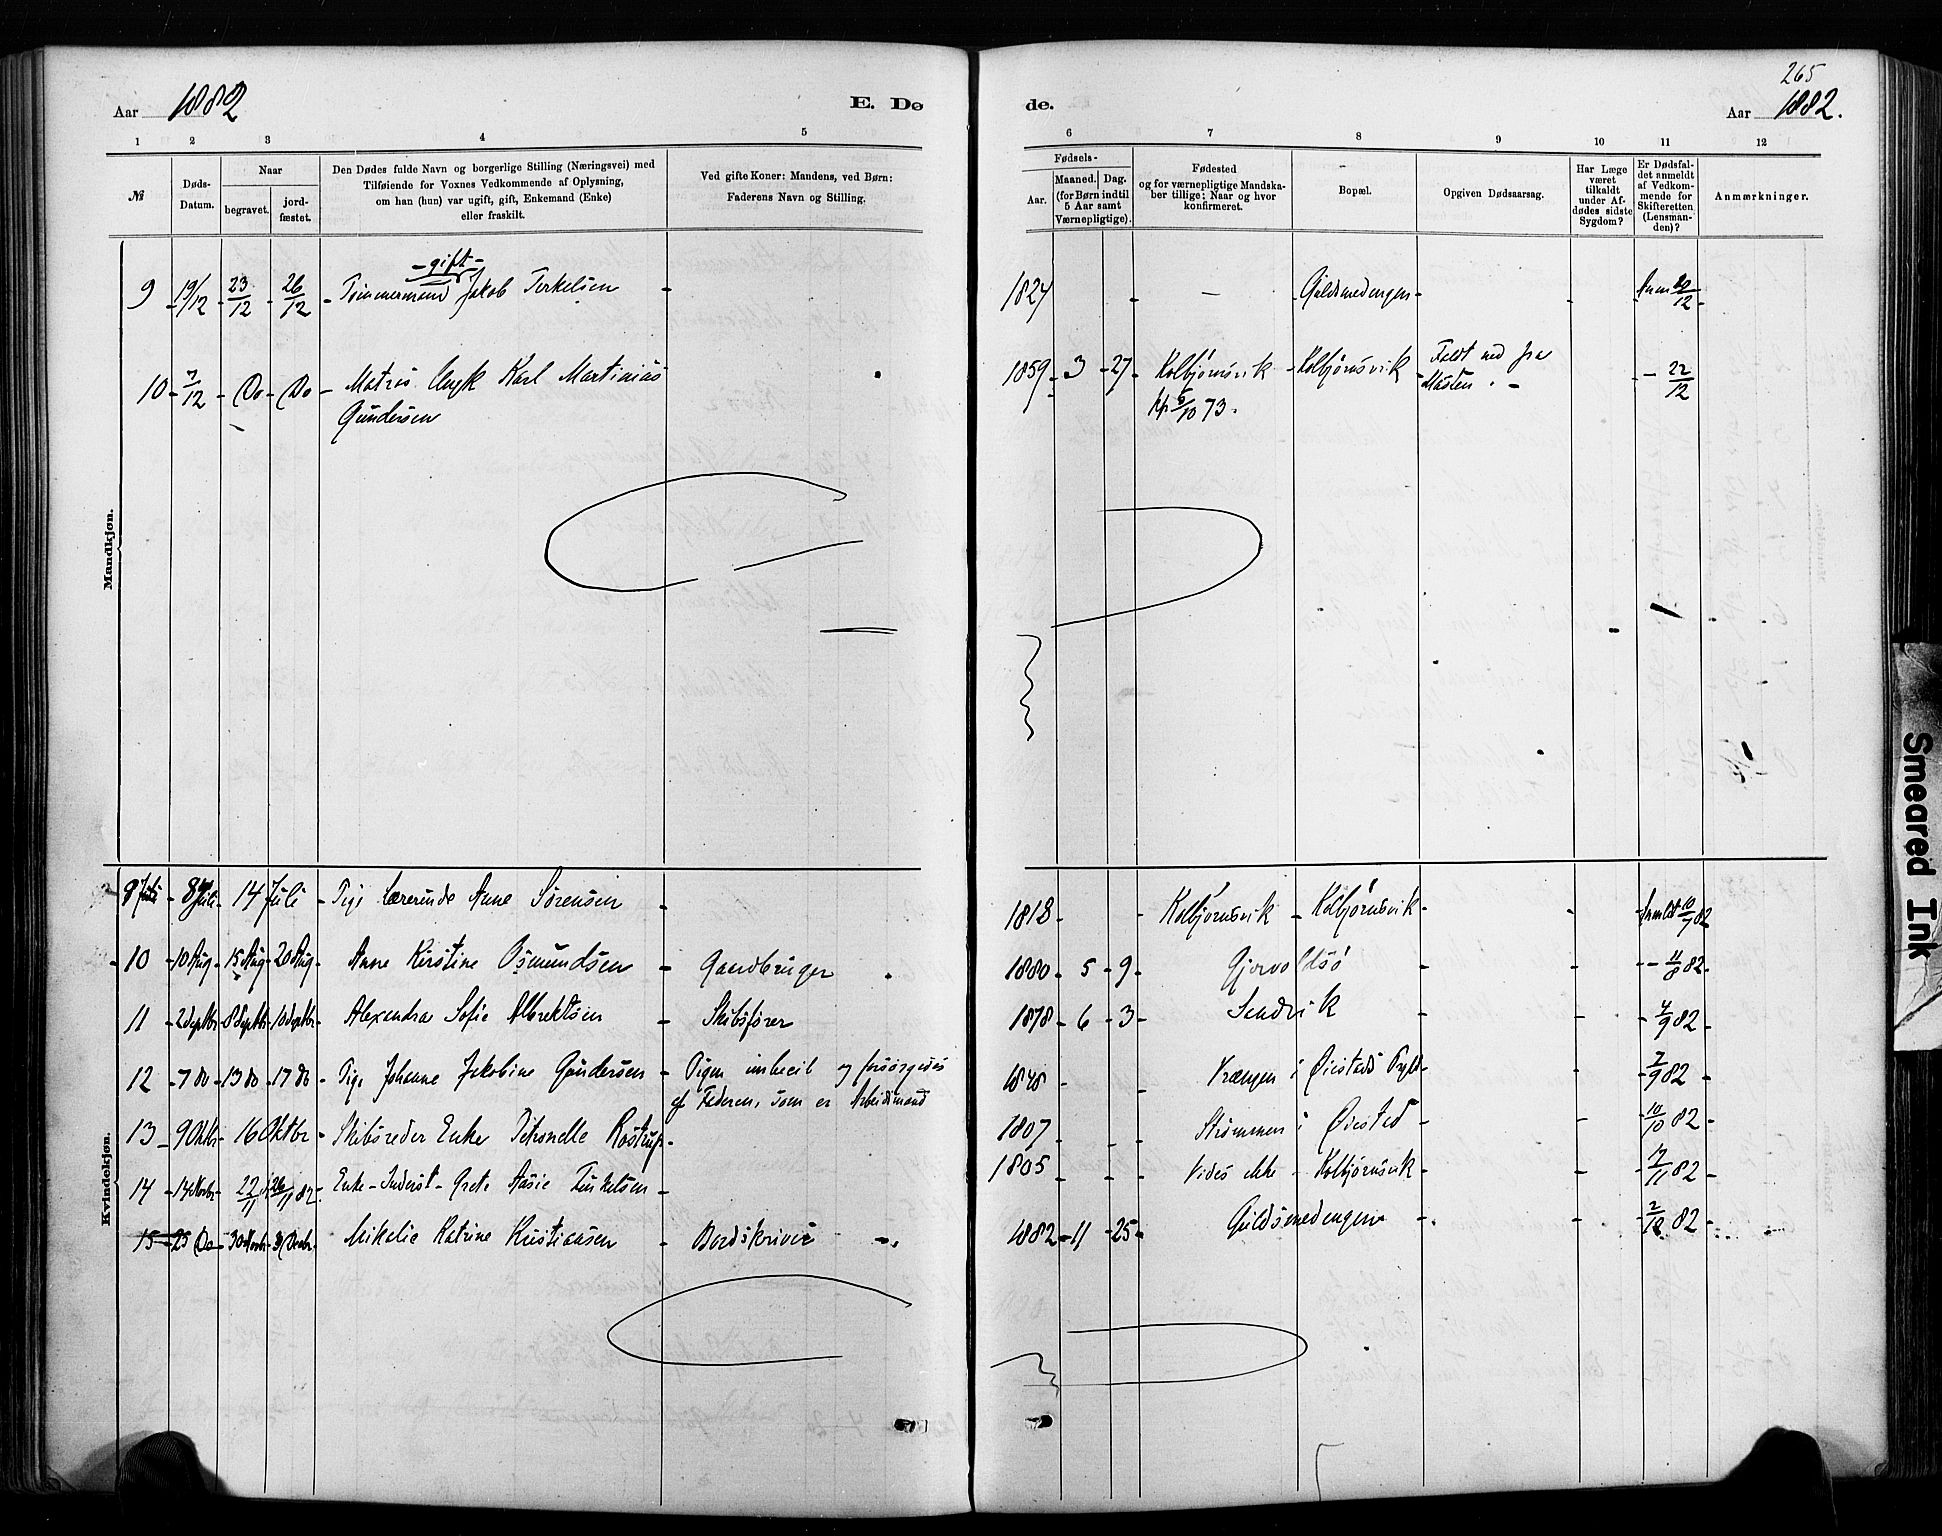 265
Aar 1882
E. Dø
de.
Aar 1882.
1 2 3 4 5
6 7 8 9 10 11 12
№
Døds-
Datum.
Naar
begravet.
jord-
fæstet.
Den Dødes fulde Navn og borgerlige Stilling (Næringsvei) med
Tilføiende for Voxnes Vedkommende af Oplysning,
om han (hun) var ugift, gift, Enkemand (Enke)
eller fraskilt.
Ved gifte Koner: Mandens, ved Børn:
Faderens Navn og Stilling.
Fødsels-
Aar.
Maaned. Dag.
(for Børn indtil
5 Aar samt
Værnepligtige).
Fødested
og for værnepligtige Mandska-
ber tillige: Naar og hvor
konfirmeret.
Bopæl.
Opgiven Dødsaarsag.
Har Læge
været
tilkaldt
under Af-
dødes sidste
Sygdom?
Er Dødsfal-
det anmeldt
af Vedkom-
mende for
Skifteretten
(Lensman-
den)?
Anmærkninger.
Mandkjøn.
- gift -
9 19/12 23/12 26/12 Tømmermand Jakob Terkelsen 1824 - Guldsmedengen
10 7/12 Do Do Matros Ungk Karl Martinius 1859 3 27 Kolbjørnsvik Kolbjørnsvik Faldt ned fra - 22/12
Gundersen kf 6/10 73. Masten. -
Kvindekjøn.
8 Juli 14 Juli Pige Lærerinde Anne Sørensen 1818 Kolbjørnsvik Kolbjørnsvik 10/7 82
10 10 Aug 15 Aug 20 Aug Anne Kirstine Osmundsen Gaardbruger 1880 5 9 Gjervoldsø - 11/8 82
11 2 Septbr 8 Septbr 10 Septbr Alexandra Sofie Albrektsen Skibsfører 1878 6 3 Sandvik 4/9 82
12 7 do 13 do 17 do Pige Johanne Jakobine Gundersen Pigen imbecil og forsørgedes 1848 Vrængen i Øiestads Pgld 7/9 82
af Faderen, som er Arbeidsmand
13 9 Oktbr 16 Oktbr Skibsreder Enke Petronelle Rostrup 1807 Strømmen i Øiested 10/10 82
14 14 Novbr 22/11 26/11 82 Enke - Inderst - Grete Aasie Terkelsen 1805 Vides ikke Kolbjørnsvik 17/11 82
15 25 Do 30 Novbr 3 Decbr Mikalie Katrine Kristiansen Bordskriver 1882 11 25 Guldsmedengen 2/12 82
Smeared Ink